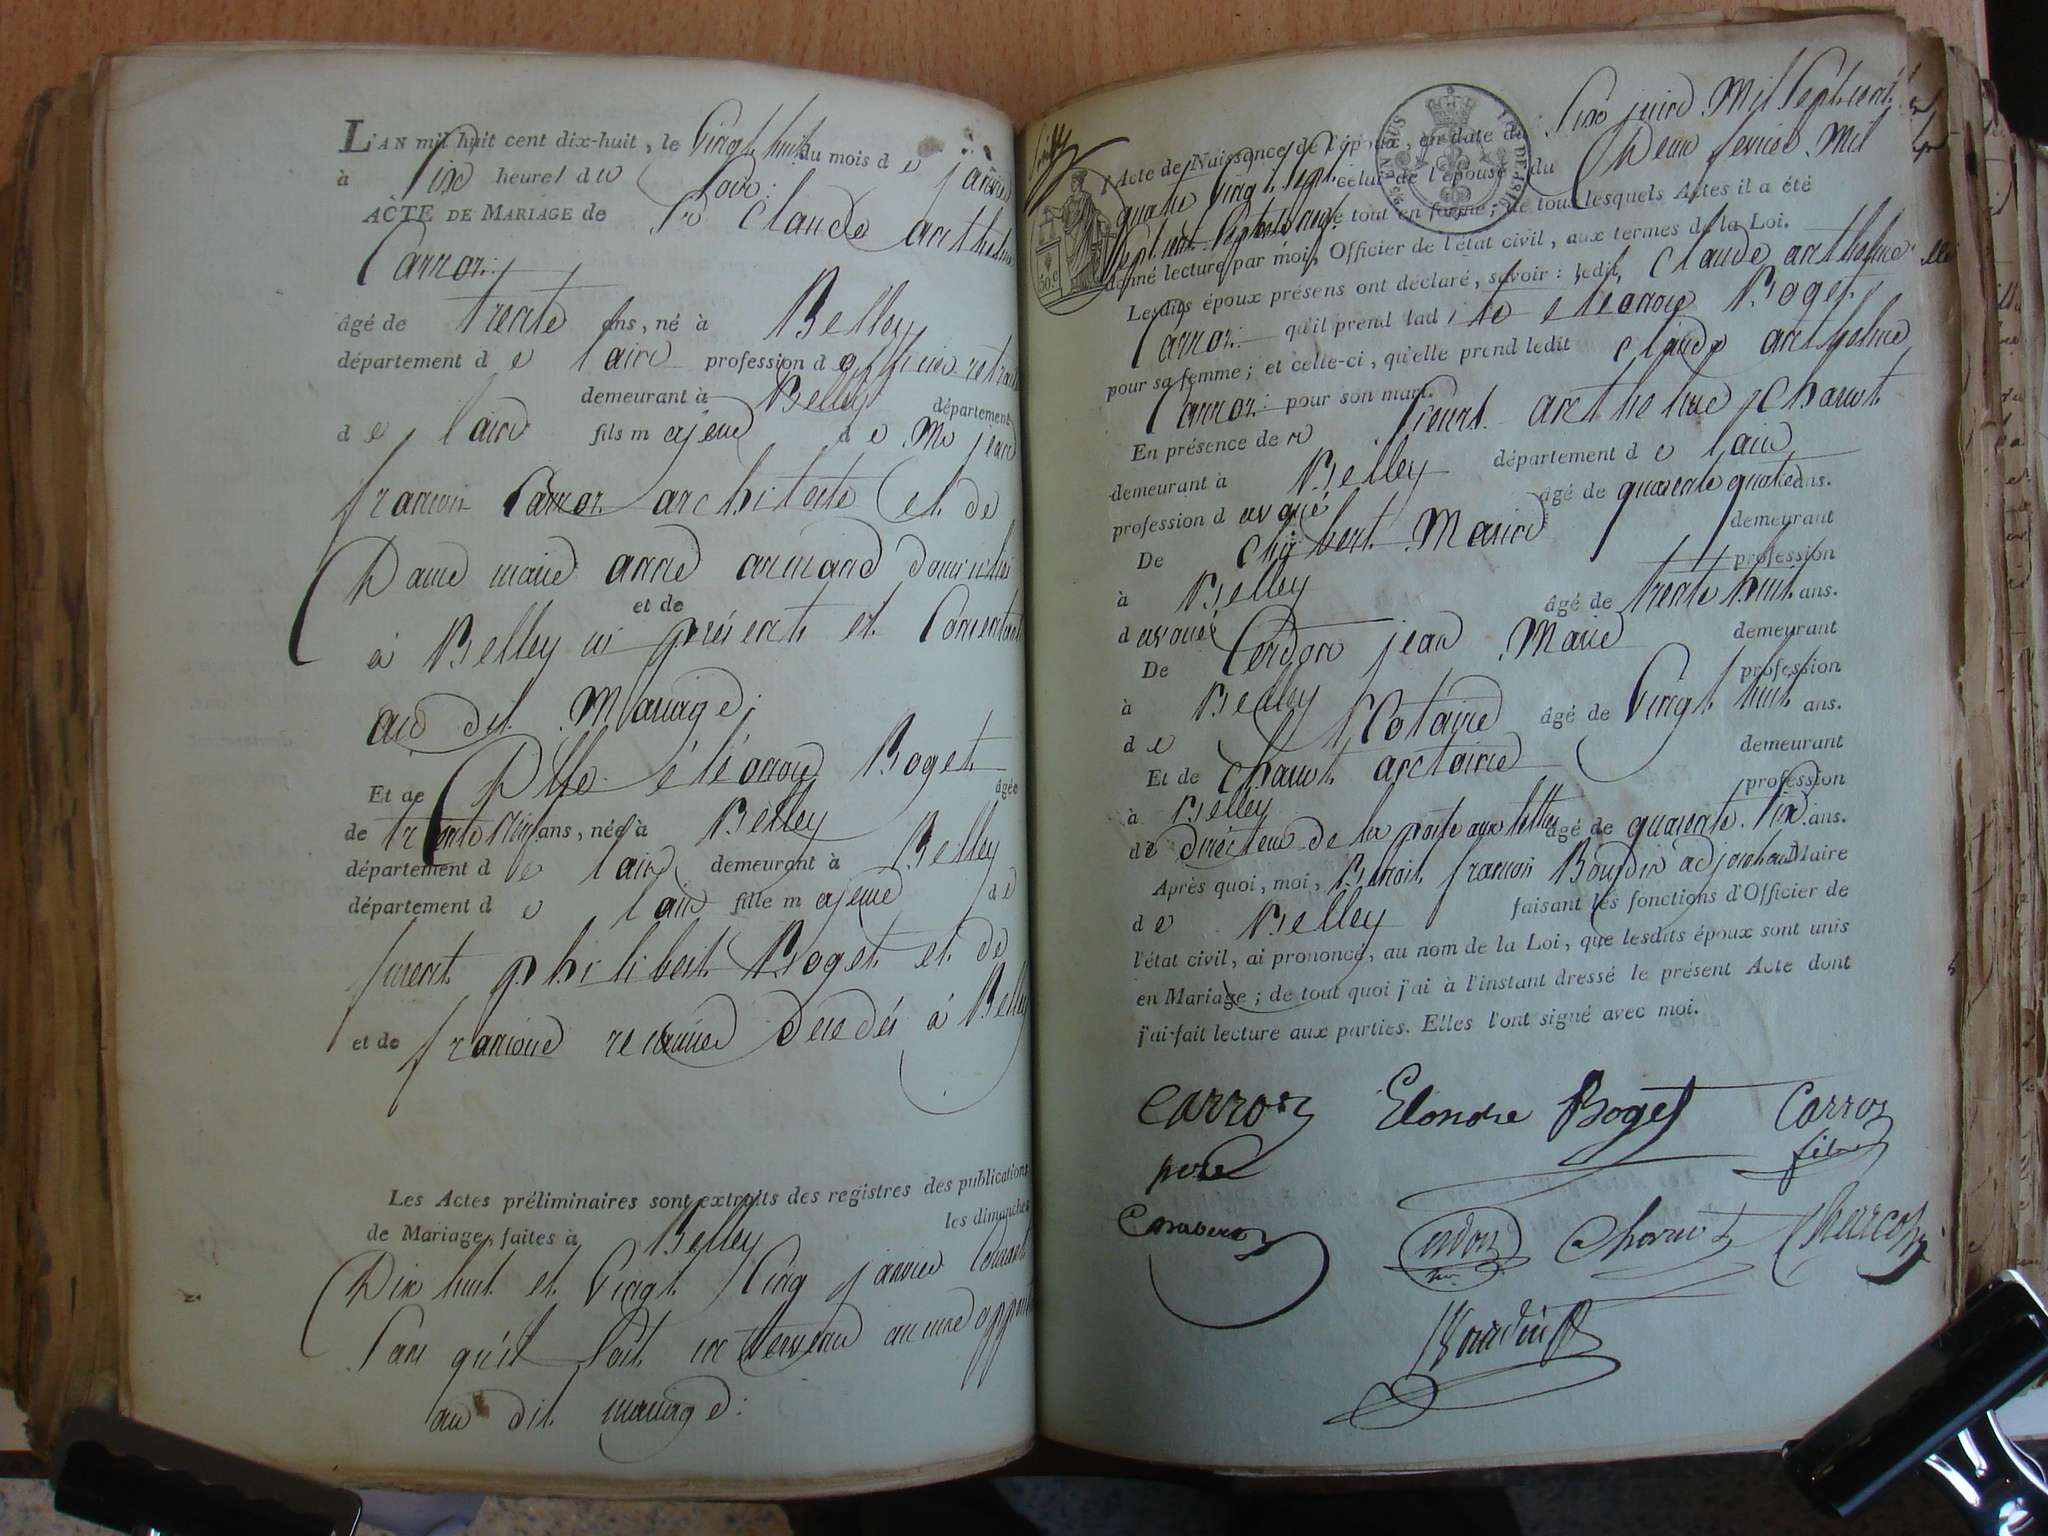 L'AN mil huit cent dix-huit, le Vingt huit du mois de janvier
à Six heures du Soir.
ACTE DE MARIAGE de Sr Claude anthelme
Carron
âgé de trente ans, né à Belley
département de lain profession d officier retraité
demeurant à Belley département
de lain fils majeur de Mr jean
francois Carron architecte et de
Dame marie anne armand domiciliés
et de
à Belley ici présents et Consentant
au dit Mariage;
Et de Dlle éléonore Boget âgée
de trente ans, née à Belley
département de lain demeurant à Belley
département de lain fille majeure de
furent philibert Boget et de
et de francoise décédés à Belley
Les Actes préliminaires sont extraits des registres des publications
de Mariage, faites à Belley les dimanches
Dix huit et Vingt Cinq janvier Courant
Sans qu'il Soit intervenu aucune opposit
au dit mariage:
l'Acte de Naissance de l'époux, en date du Six juin Mil Sept cent
quatre Vingt Sept celui de l'épouse du Deux fevrier Mil
Sept cent Septante Cinq le tout en forme; de tous lesquels Actes il a été
donné lecture par moi, Officier de l'état civil, aux termes de la Loi.
Lesdits époux présens ont déclaré, savoir: ledit Claude anthelme
Carron qu'il prend ladite eléonore Boget
pour sa femme; et celle-ci, qu'elle prend ledit Claude anthelme
Carron pour son mari.
En présence de anthelme
demeurant à Belley département de lain
profession d avoué âgé de quarente quatre ans.
De demeurant
à Belley profession
d avoué âgé de trente huit ans.
De Cerdon jean Marie demeurant
à Belley profession
de Notaire âgé de Vingt huit ans.
Et de antoine demeurant
à Belley profession
de directeur de la poste aux lettres âgé de quarente Six ans.
Après quoi, moi, Benoit francois adjoint au Maire
de Belley faisant les fonctions d'Officier de
l'état civil, ai prononcé, au nom de la Loi, que lesdits époux sont unis
en Mariage; de tout quoi j'ai à l'instant dressé le présent Acte dont
j'ai fait lecture aux parties. Elles l'ont signé avec moi.
Carron Elonore Boget Carron
pere